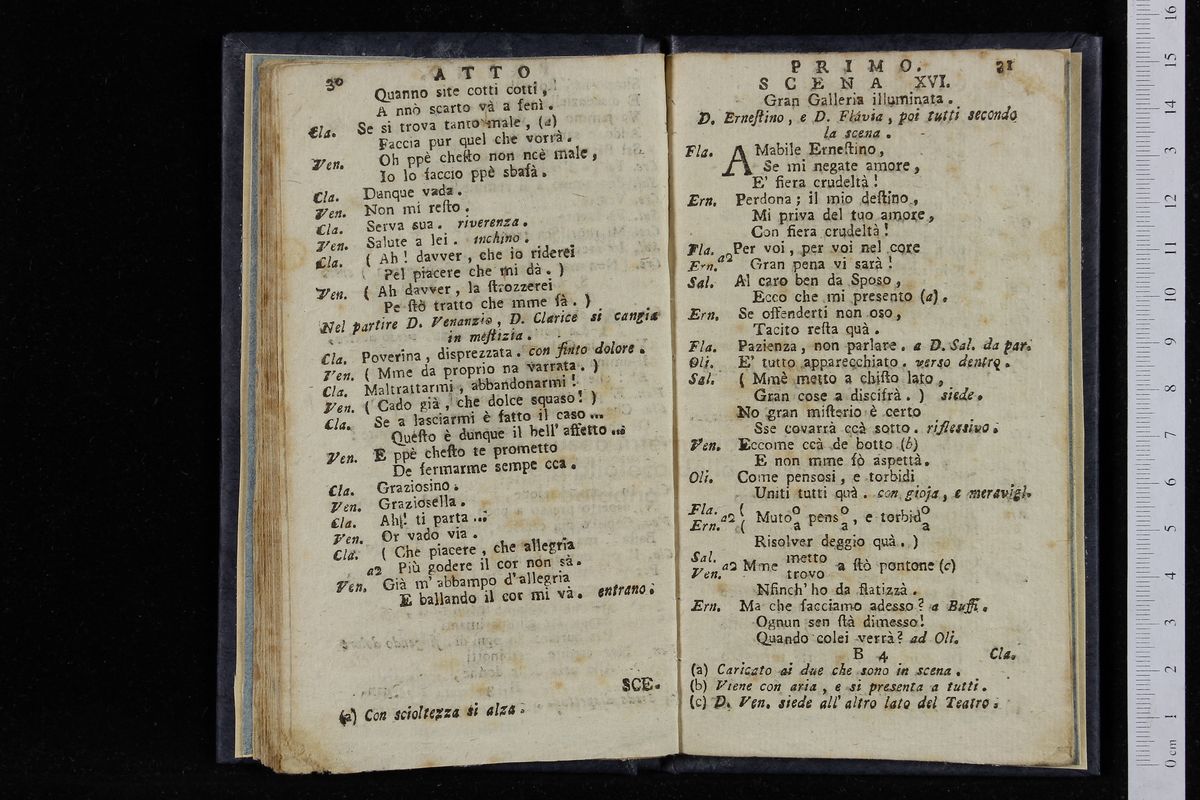 30 ATTO
Quanno site cotti cotti,
A nnò scarto và a fenì.
Cla. Se si trova tanto male, (a)
Faccia pur quel che vorrà.
Ven. Oh ppè chesto non ncè male,
Io lo faccio ppè sbafà.
Cla. Dunque vada.
Ven. Non mi resto.
Cla. Serva sua. riverenza.
Ven. Salute a lei. inchino.
Cla. ( Ah! davver, che io riderei
Pel piacere che mi dà. )
Ven. ( Ah davver, la strozzerei
Pe stò tratto che mme fà. )
Nel partire D. Venanzio, D. Clarice si cangia
in mestizia.
Cla. Poverina, disprezzata. con finto dolore.
Ven. ( Mme da proprio na varrata. )
Cla. Maltrattarmi, abbandonarmi!
Ven. ( Cado già, che dolce squaso! )
Cla. Se a lasciarmi è fatto il caso...
Questo è dunque il bell' affetto...
Ven. E ppè chesto te prometto
De fermarme sempe cca.
Cla. Graziosino.
Ven. Graziosella.
Cla. Ah! ti parta...
Ven. Or vado via.
Cla. ( Che piacere, che allegria
a2 Più godere il cor non sà.
Ven. Già m' abbampo d' allegria
E ballando il cor mi và. entrano.
SCE.
(a) Con scioltezza si alza.
PRIMO. 31
SCENA XVI.
Gran Galleria illuminata.
D. Ernestino, e D. Flavia, poi tutti secondo
la scena.
Fla. AMabile Ernestino,
Se mi negate amore,
E' fiera crudeltà!
Ern. Perdona; il mio destino,
Mi priva del tuo amore,
Con fiera crudeltà!
Fla. Per voi, per voi nel core
Ern. a2 Gran pena vi sarà!
Sal. Al caro ben da Sposo,
Ecco che mi presento (a).
Ern. Se offenderti non oso,
Tacito resta quà.
Fla. Pazienza, non parlare. a D. Sal. da par.
Oli. E' tutto apparecchiato. verso dentro.
Sal. ( Mmè metto a chisto lato,
Gran cose a discifrà. ) siede.
No gran misterio è certo
Sse covarrà ccà sotto. riflessivo.
Ven. Eccome ccà de botto (b)
E non mme fò aspettà.
Oli. Come pensosi, e torbidi
Uniti tutti quà. con gioja, e meravigl.
Fla. ( o o o
a2 Mut pens , e torbid
Ern. ( a a a
Risolver deggio quà. )
Sal. metto
a2 Mme a stò pontone (c)
Ven. trovo
Nfinch' ho da flatizzà.
Ern. Ma che facciamo adesso? a Buffi.
Ognun sen stà dimesso!
Quando colei verrà? ad Oli.
B 4 Cla.
(a) Caricato ai due che sono in scena.
(b) Viene con aria, e si presenta a tutti.
(c) D. Ven. siede all' altro lato del Teatro.
0 cm 1 2 3 4 5 6 7 8 9 10 11 12 13 14 15 16